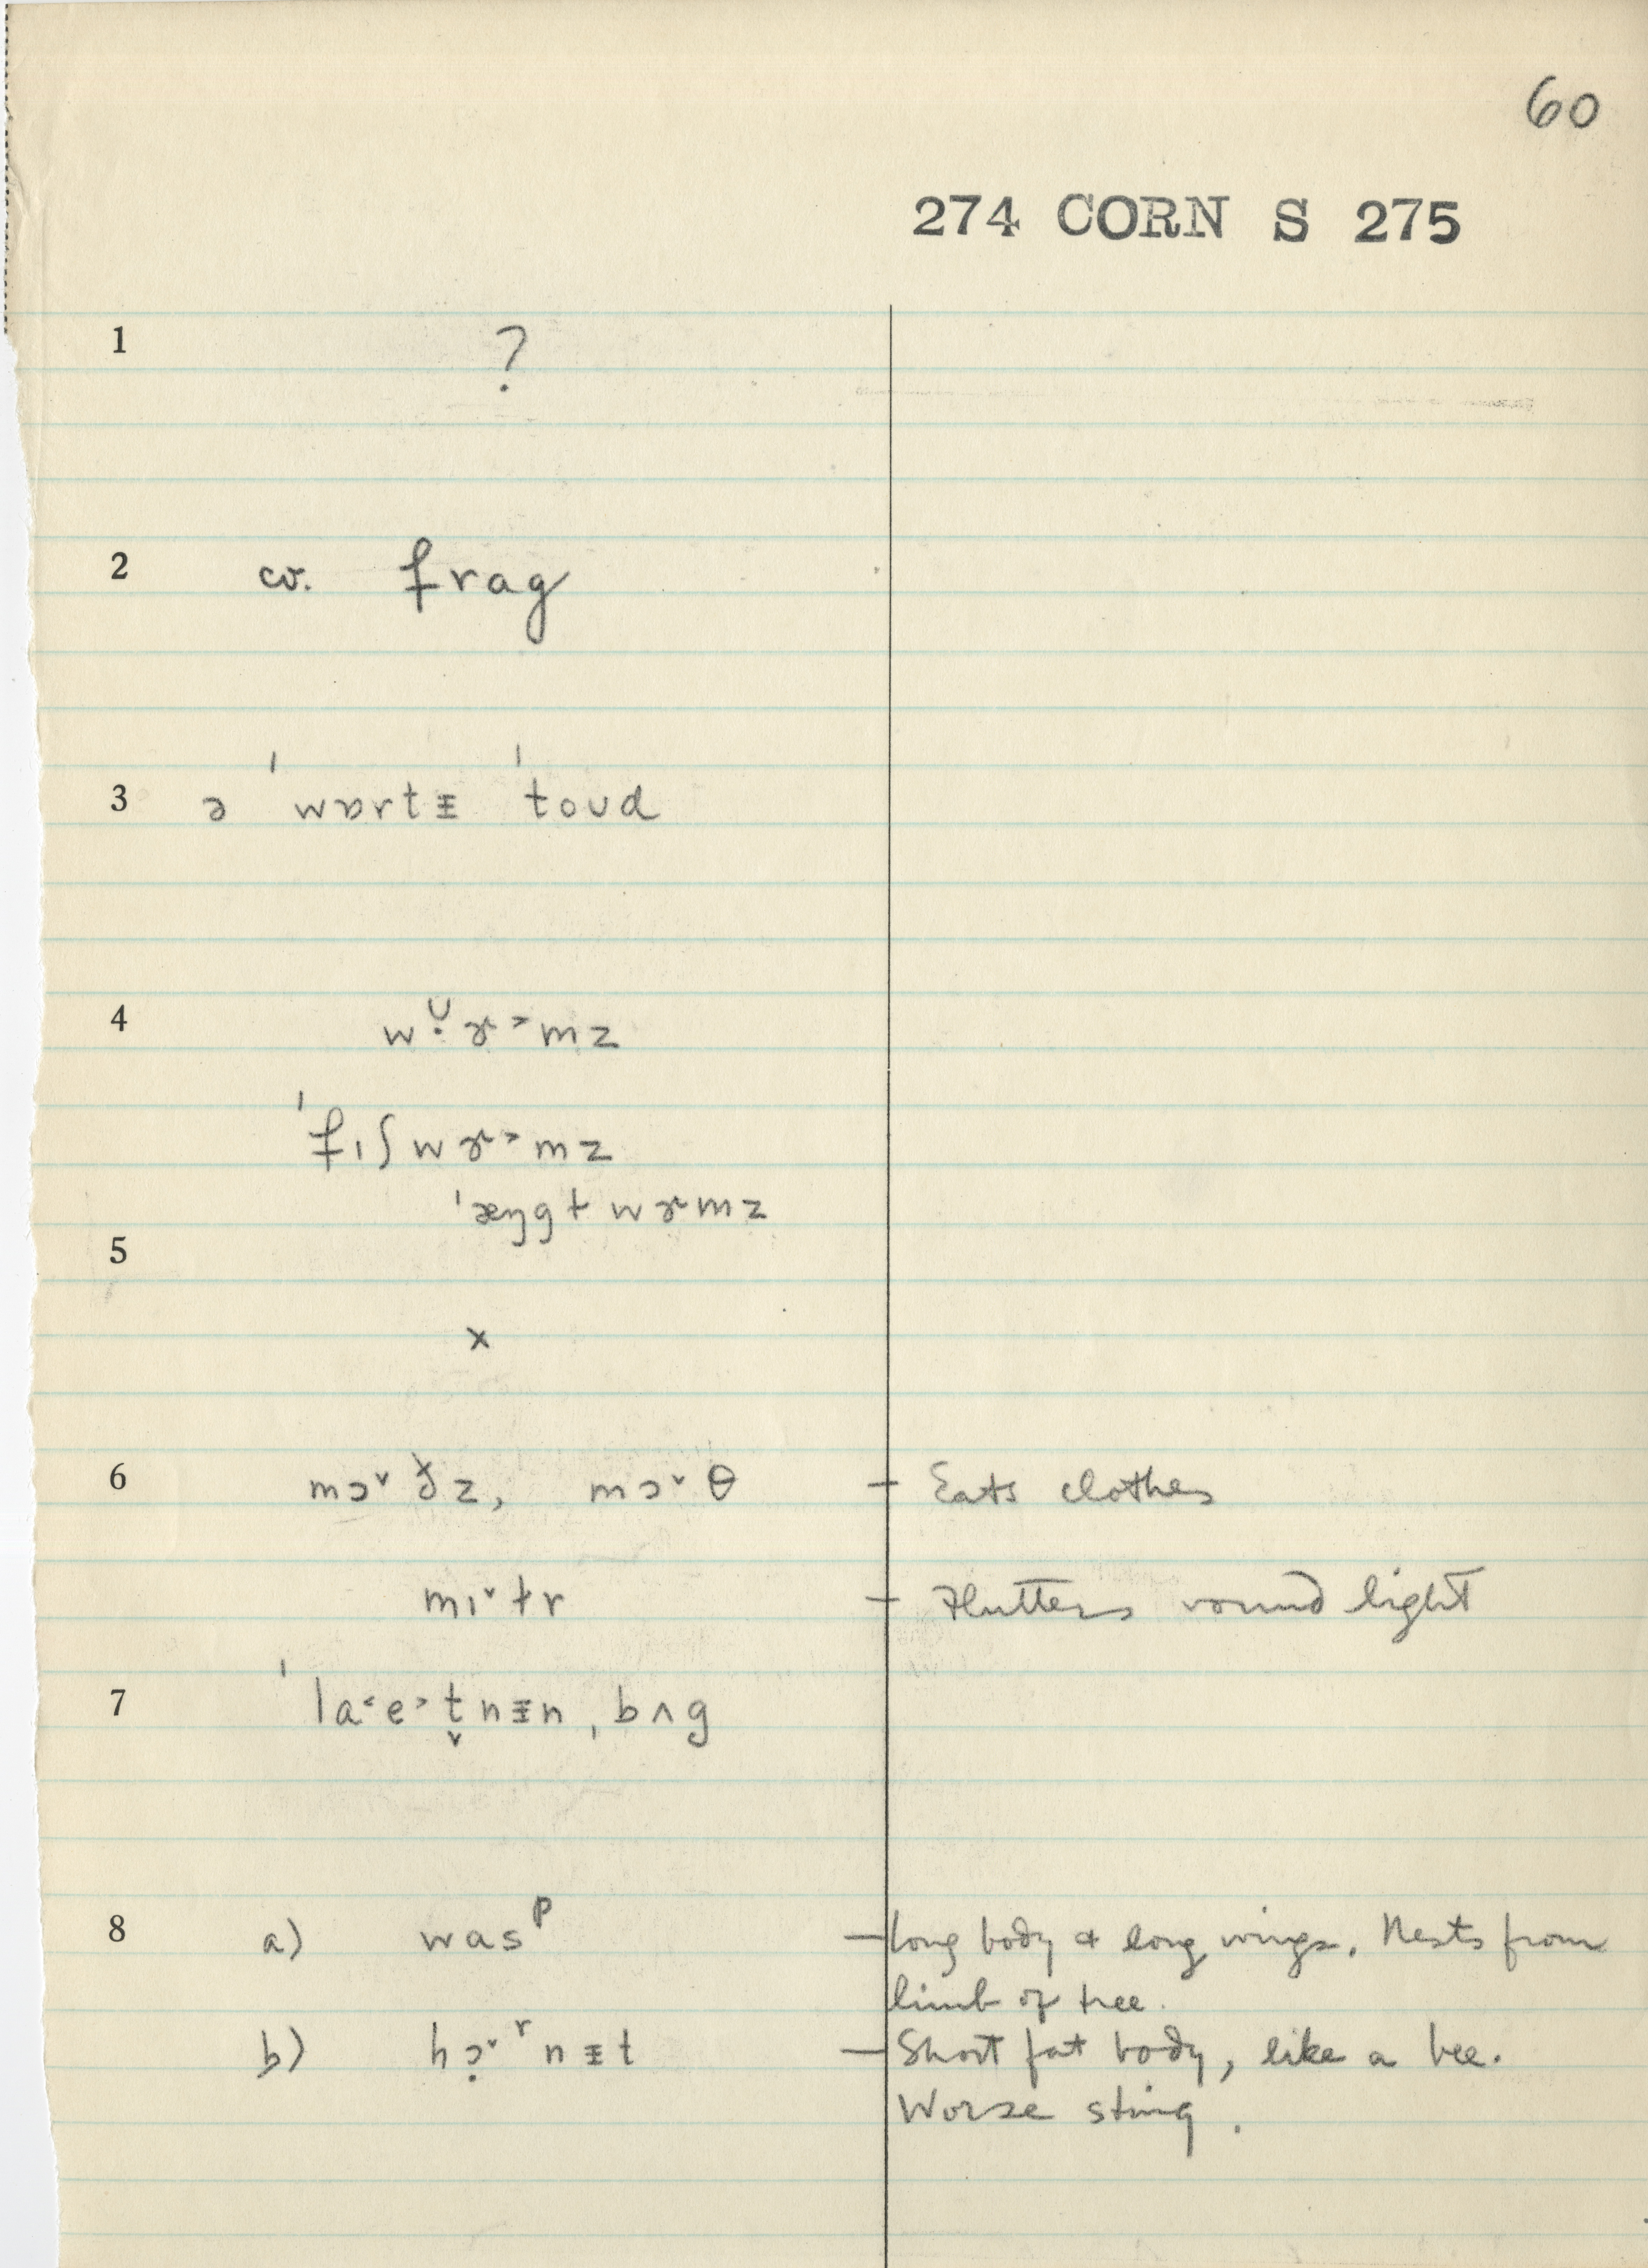 60
274 CORN S 275
1 ?
2 cv. frag
3 ə ˈwɒrtᵻ ˈtoʊd
4 wʊ̣ɚ˃mz
ˈfɪʃwɚ˃mz
ˈæŋgɫwɚmz
5
x
6 mɔ˅ð̵z, mɔ˅θ – Eats clothes
mɪ˅ɫr – Flutters round light
7 ˈla˂e˃t̬nᵻn ˌbʌg
8 a) wasᵖ – long body & long wings. Nests from
limb of tree.
b) hɔ̣˅ʳnᵻt – Short fat body, like a bee.
Worse sting.